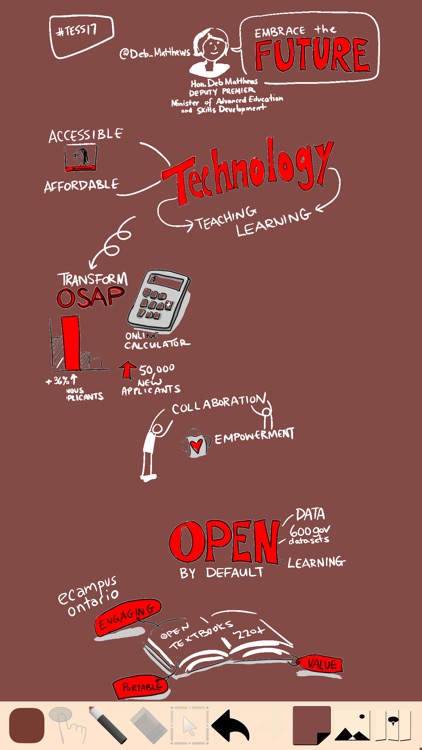 #TESS17
@Deb_Matthews
EMBRACE the
FUTURE
Hon. Deb Matthews
DEPUTY PREMIER
Minister of Advanced Education
and Skills Development
ACCESSIBLE
AFFORDABLE
Technology
TEACHING
LEARNING
TRANSFORM
OSAP
ONLINE
CALCULATOR
+36%
50,000
NEW
APPLICANTS
COLLABORATION
EMPOWERMENT
OPEN
BY DEFAULT
DATA
600 gov
datasets
LEARNING
ecampus
ontario
ENGAGING
OPEN
TEXTBOOKS
220+
VALUE
PORTABLE